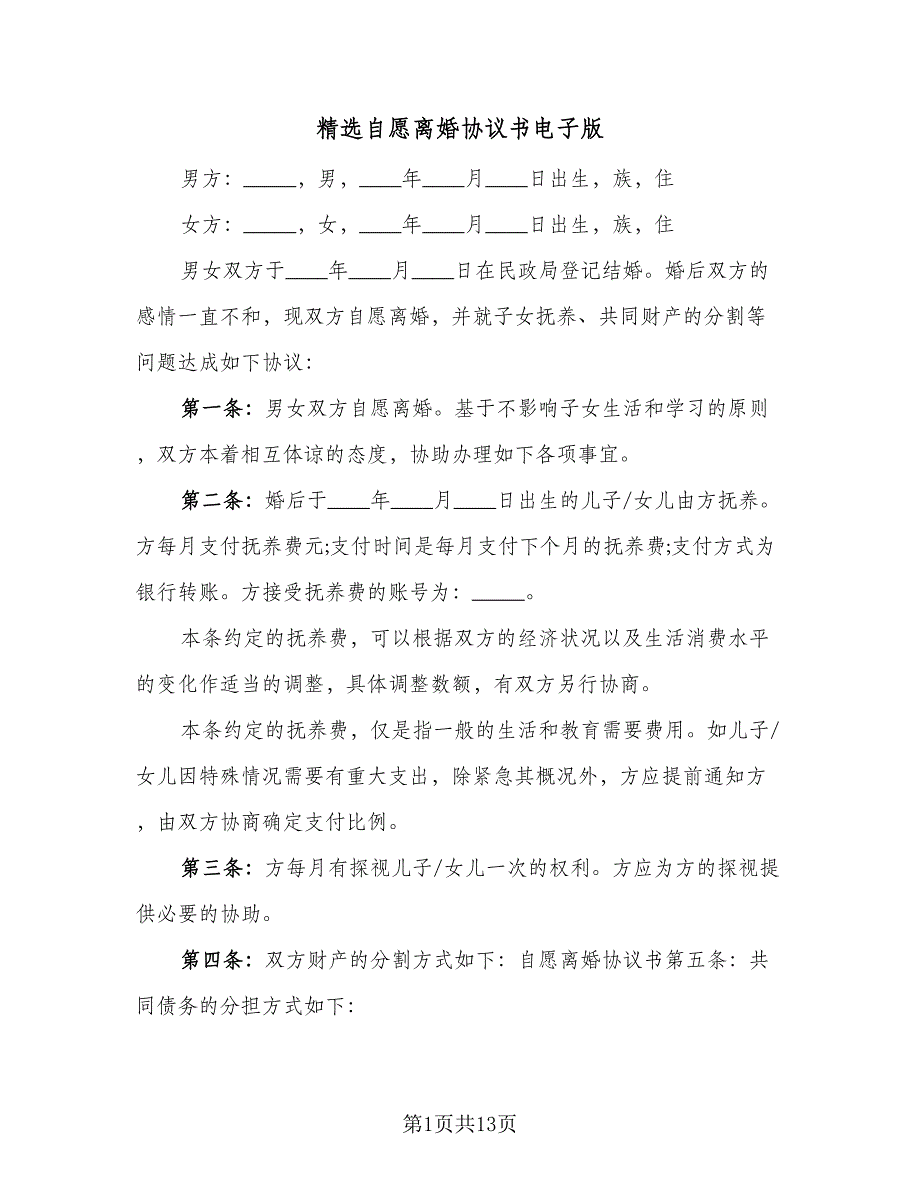 精选自愿离婚协议书电子版
男方：_____，男，____年____月____日出生，族，住
女方：_____，女，____年____月____日出生，族，住
男女双方于____年____月____日在民政局登记结婚。婚后双方的
感情一直不和，现双方自愿离婚，并就子女抚养、共同财产的分割等
问题达成如下协议：
第一条：男女双方自愿离婚。基于不影响子女生活和学习的原则
，双方本着相互体谅的态度，协助办理如下各项事宜。
第二条：婚后于____年____月____日出生的儿子/女儿由方抚养。
方每月支付抚养费元;支付时间是每月支付下个月的抚养费;支付方式为
银行转账。方接受抚养费的账号为：_____。
本条约定的抚养费，可以根据双方的经济状况以及生活消费水平
的变化作适当的调整，具体调整数额，有双方另行协商。
本条约定的抚养费，仅是指一般的生活和教育需要费用。如儿子/
女儿因特殊情况需要有重大支出，除紧急其概况外，方应提前通知方
，由双方协商确定支付比例。
第三条：方每月有探视儿子/女儿一次的权利。方应为方的探视提
供必要的协助。
第四条：双方财产的分割方式如下：自愿离婚协议书第五条：共
同债务的分担方式如下：
第1页共13页